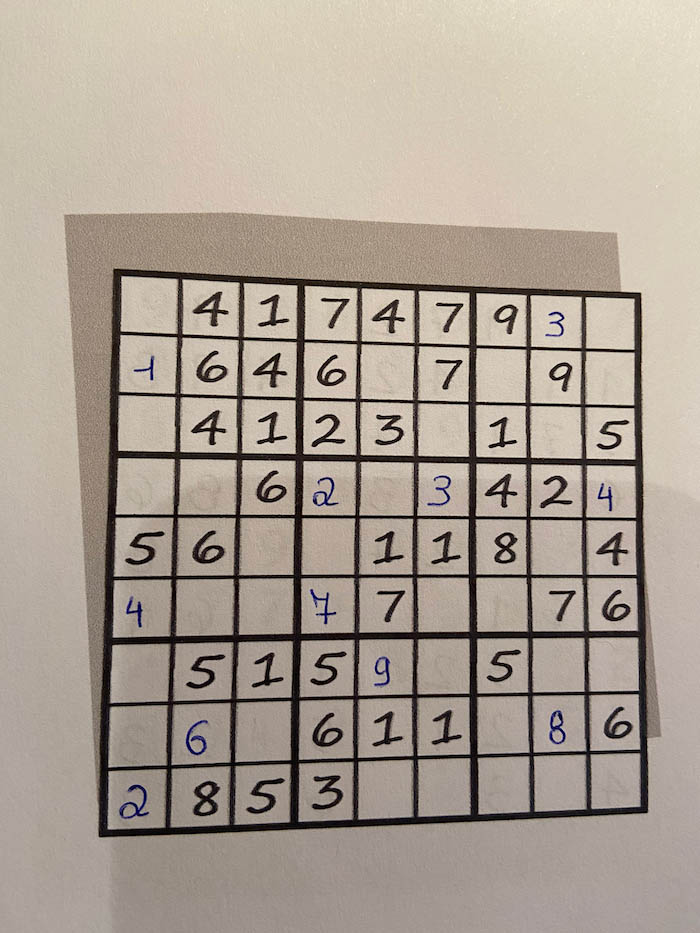 4 1 7 4 7 9 3
1 6 4 6 7 9
4 1 2 3 1 5
6 2 3 4 2 4
5 6 1 1 8 4
4 7 7 7 6
5 1 5 9 5
6 6 1 1 8 6
2 8 5 3